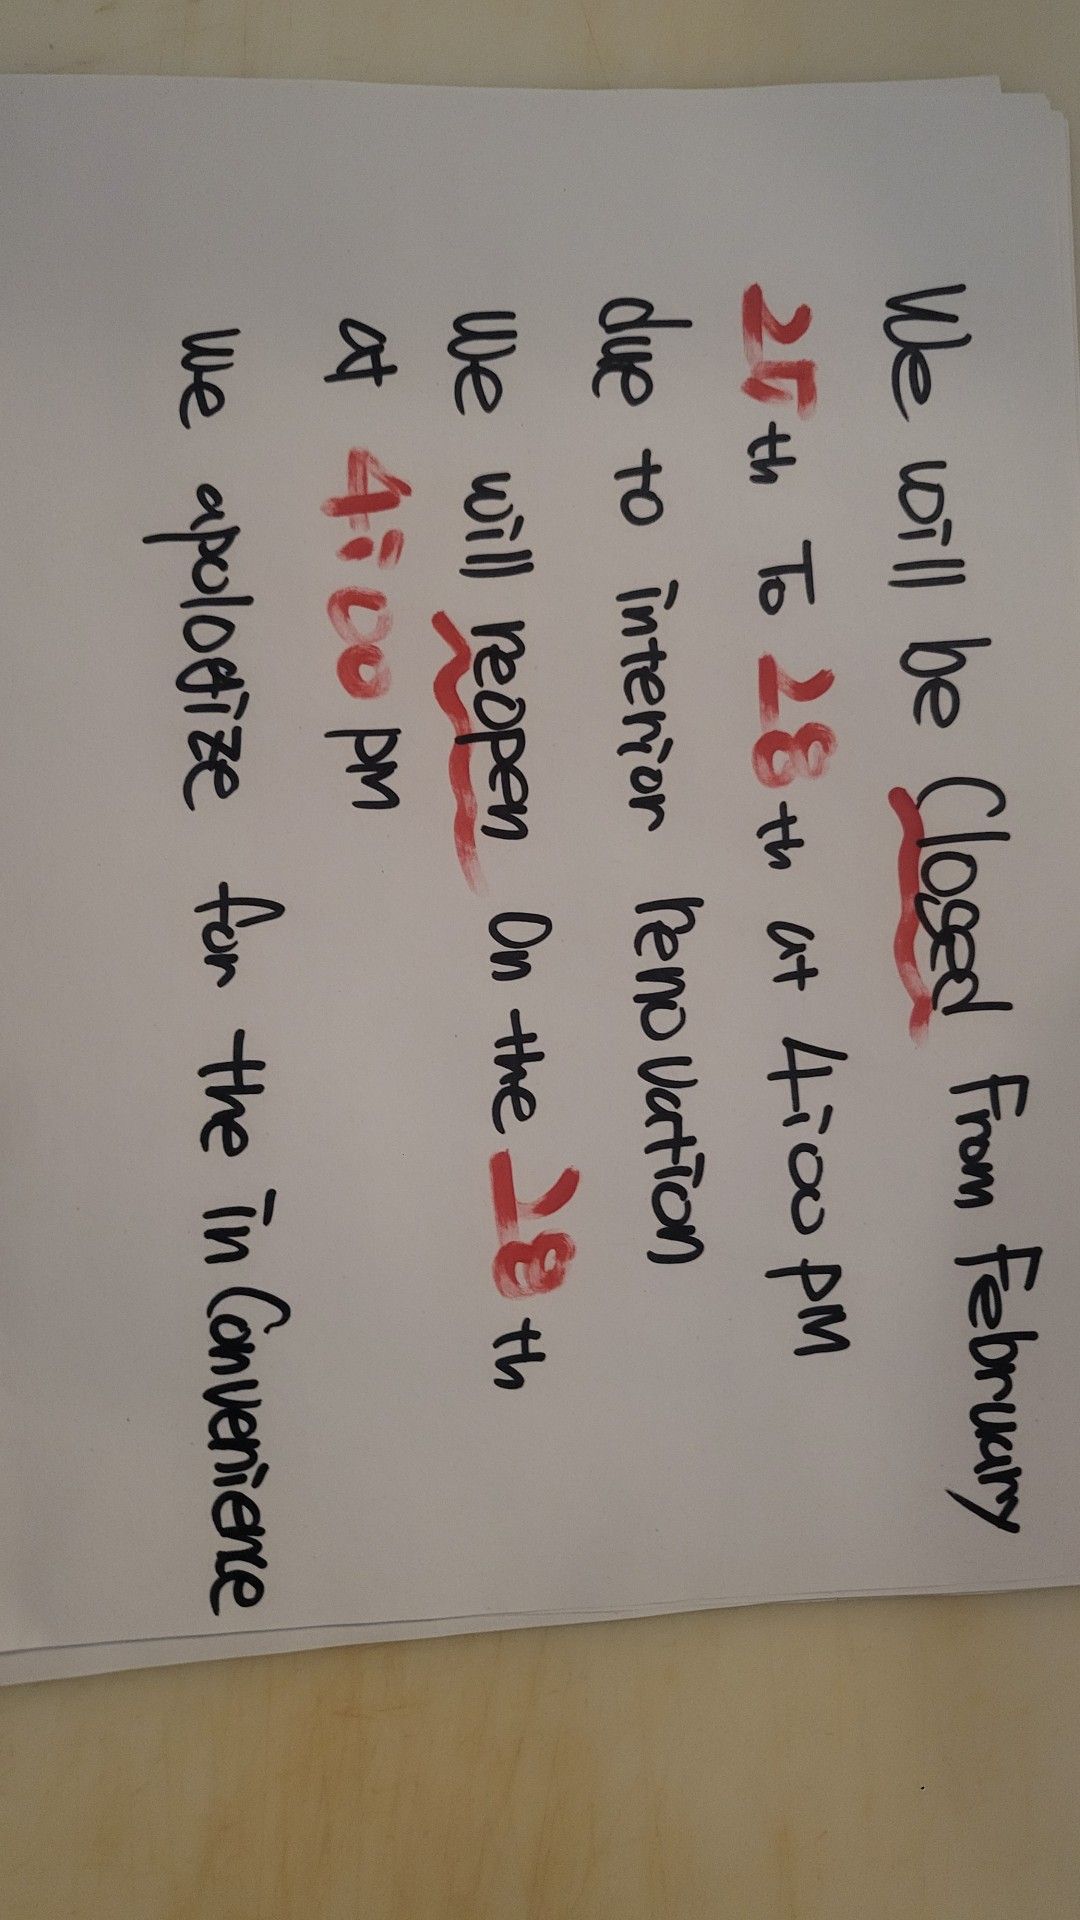 We will be Closed From February
25th To 28th at 4:00 PM
due to interior renovation
We will reopen On the 28th
at 4:00 PM
We apologize for the inConvenience